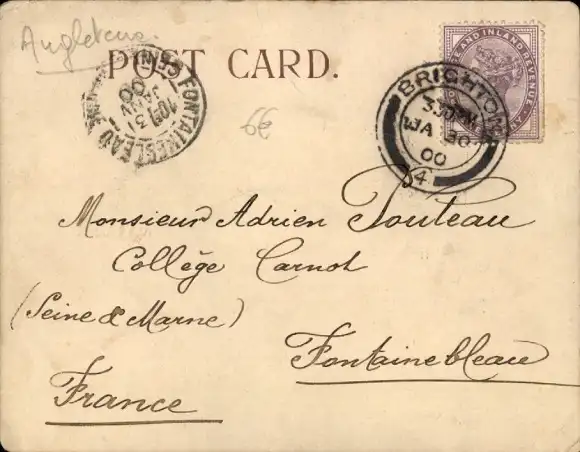 Angleterre
POST CARD.
FONTAINEBLEAU
31
JANV
00
6€
BRIGHTON
JA 30
00
POSTAGE AND INLAND REVENUE
Monsieur Adrien Pouteau
Collège Carnot
(Seine & Marne)
Fontainebleau
France